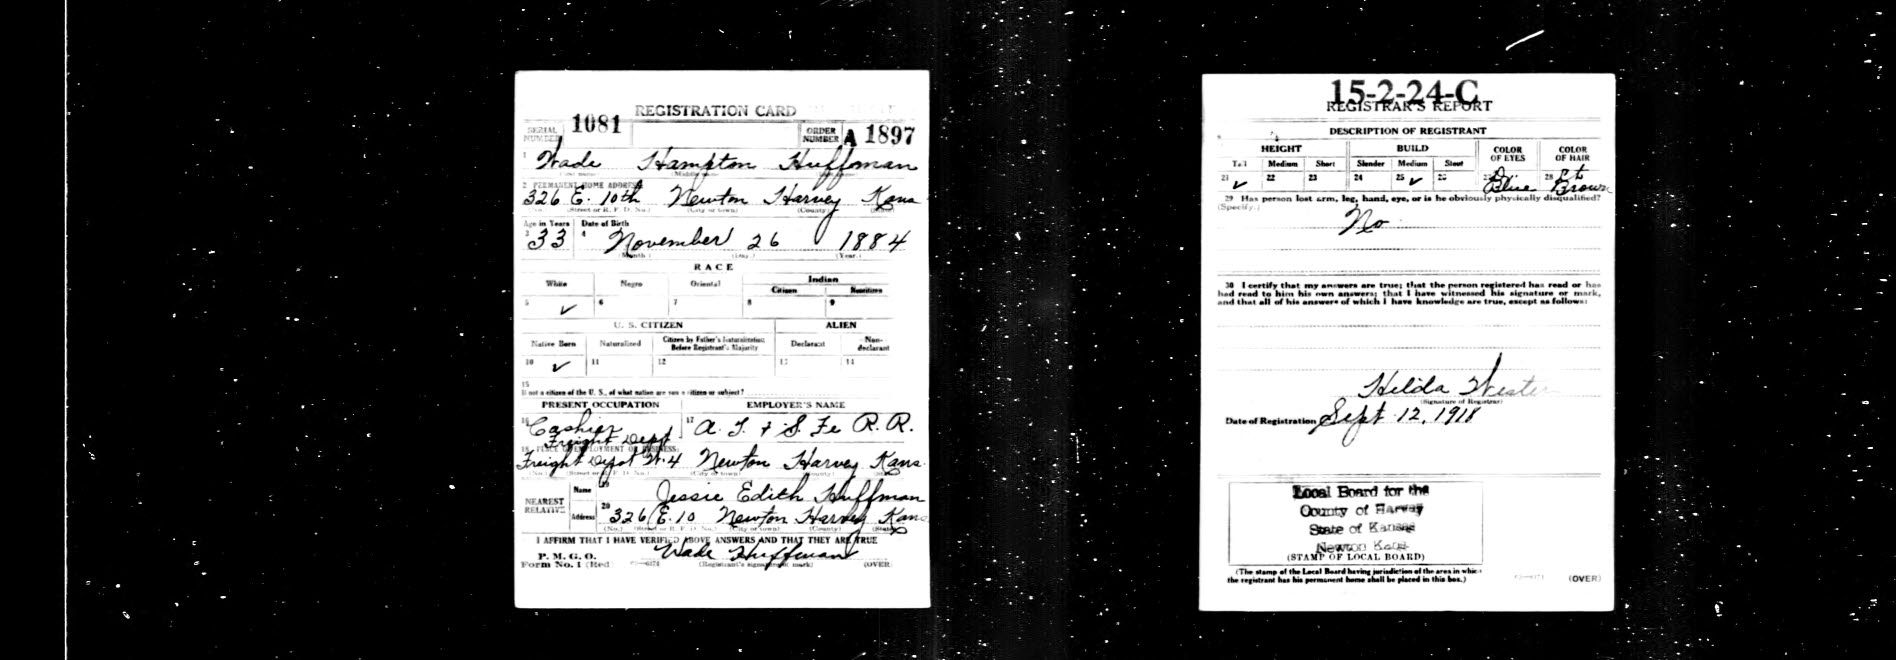 REGISTRATION CARD
SERIAL NUMBER 1081 ORDER NUMBER A 1897
1 Wade Hampton Huffman
(First name) (Middle name) (Last name)
2 PERMANENT HOME ADDRESS
326 E. 10th Newton Harvey Kans
(No.) (Street or R. F. D. No.) (City or town) (County) (State)
Age in Years Date of Birth
3 33 4 November 26 1884
(Month) (Day) (Year)
RACE
White Negro Oriental Indian
Citizen Noncitizen
5 ✓ 6 7 8 9
U. S. CITIZEN ALIEN
Native Born Naturalized Citizen by Father's Naturalization Before Registrant's Majority Declarant Non-declarant
10 ✓ 11 12 13 14
15
If not a citizen of the U. S., of what nation are you a citizen or subject?
PRESENT OCCUPATION EMPLOYER'S NAME
16 Cashier Freight Dept 17 A. T. & S. Fe R. R.
18 PLACE OF EMPLOYMENT OR BUSINESS:
Freight Depot W. 4 Newton Harvey Kans.
(No.) (Street or R. F. D. No.) (City or town) (County) (State)
NEAREST RELATIVE Name 19 Jessie Edith Huffman
Address 20 326 E. 10 Newton Harvey Kans
(No.) (Street or R. F. D. No.) (City or town) (County) (State)
I AFFIRM THAT I HAVE VERIFIED ABOVE ANSWERS AND THAT THEY ARE TRUE
P. M. G. O.
Form No. 1 (Red Wade Huffman
(Registrant's signature or mark) (OVER)
15-2-24-C
REGISTRAR'S REPORT
DESCRIPTION OF REGISTRANT
HEIGHT BUILD COLOR OF EYES COLOR OF HAIR
Tall Medium Short Slender Medium Stout
21 ✓ 22 23 24 25 ✓ 26 27 Blue 28 Lt Brown
29 Has person lost arm, leg, hand, eye, or is he obviously physically disqualified?
(Specify.)
No
30 I certify that my answers are true; that the person registered has read or has
had read to him his own answers; that I have witnessed his signature or mark,
and that all of his answers of which I have knowledge are true, except as follows:
Hilda
(Signature of Registrar)
Date of Registration Sept 12, 1918
Local Board for the
County of Harvey
State of Kansas
Newton Kans
(STAMP OF LOCAL BOARD)
(The stamp of the Local Board having jurisdiction of the area in which
the registrant has his permanent home shall be placed in this box.)
(OVER)